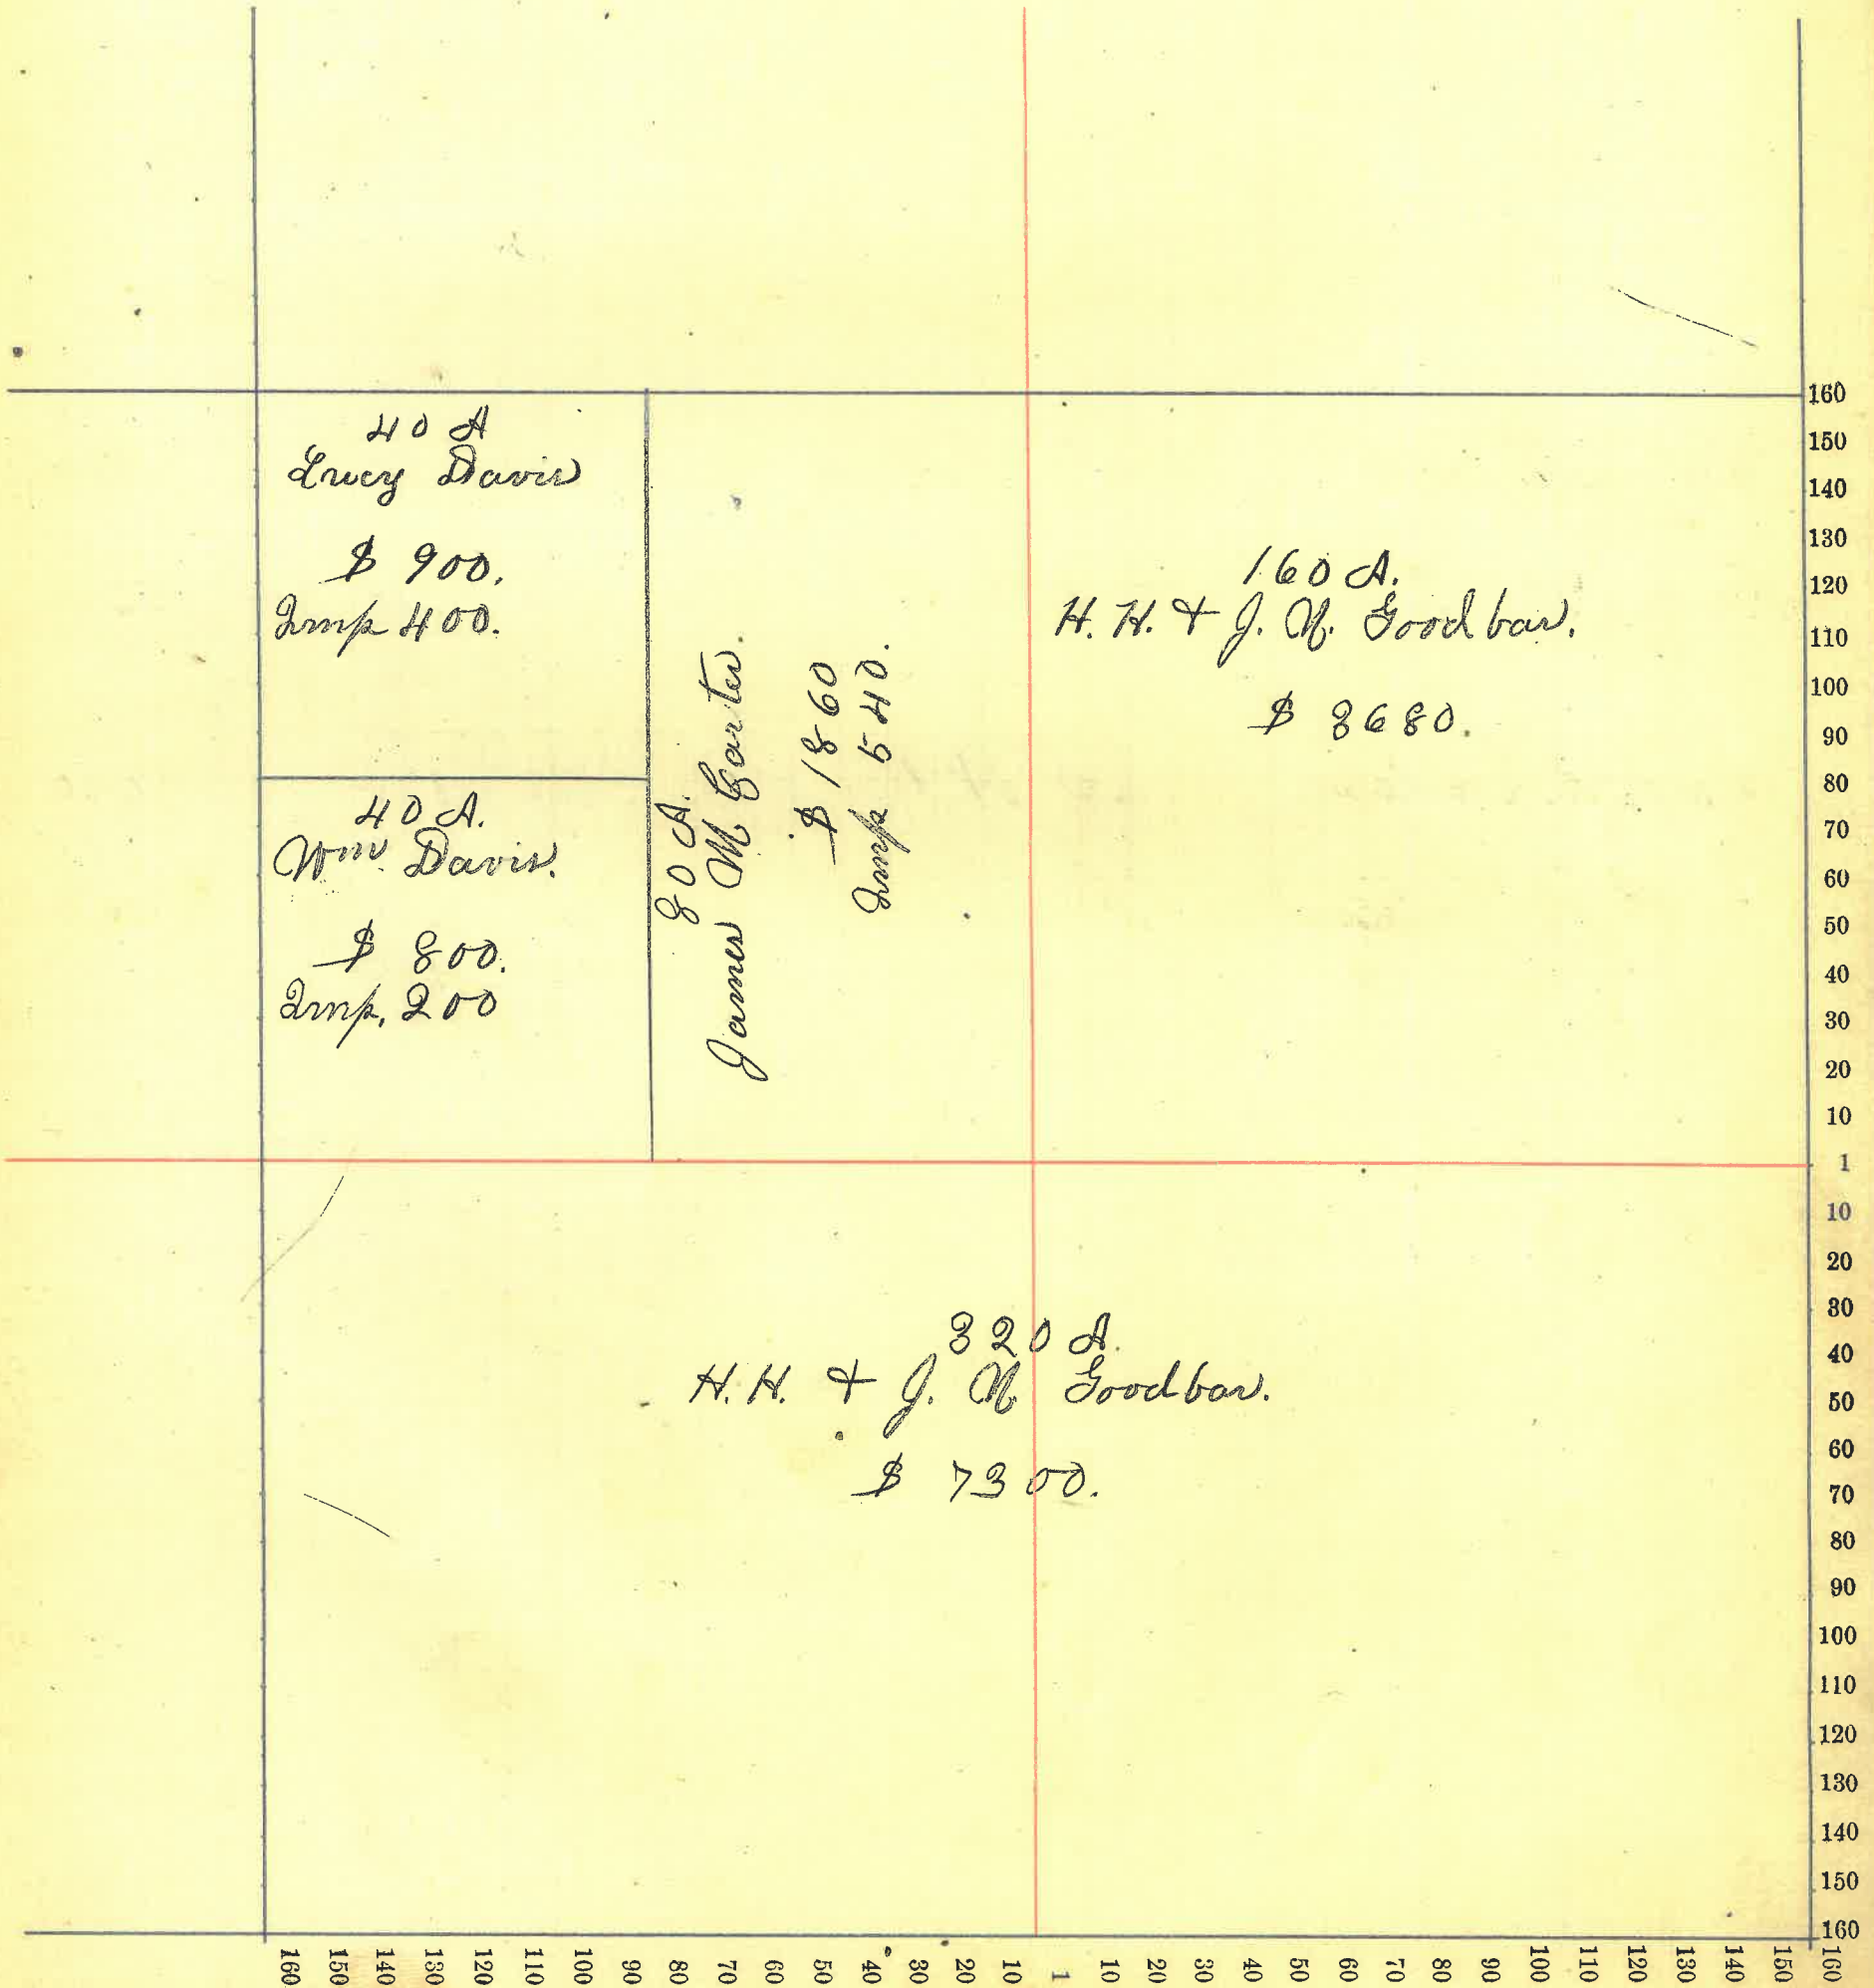 40 A
Lucy Davis
$ 900.
Imp 400.
40 A.
Wm. Davis.
$ 800.
Imp. 200
80 A.
James M Carter.
$ 1860
Imp 540.
160 A.
H. H. & J. N. Goodbar.
$ 3680.
320 A.
H. H. & J. N. Goodbar.
$ 7300.
160
150
140
130
120
110
100
90
80
70
60
50
40
30
20
10
1
10
20
30
40
50
60
70
80
90
100
110
120
130
140
150
160
160 150 140 130 120 110 100 90 80 70 60 50 40 30 20 10 1 10 20 30 40 50 60 70 80 90 100 110 120 130 140 150 160